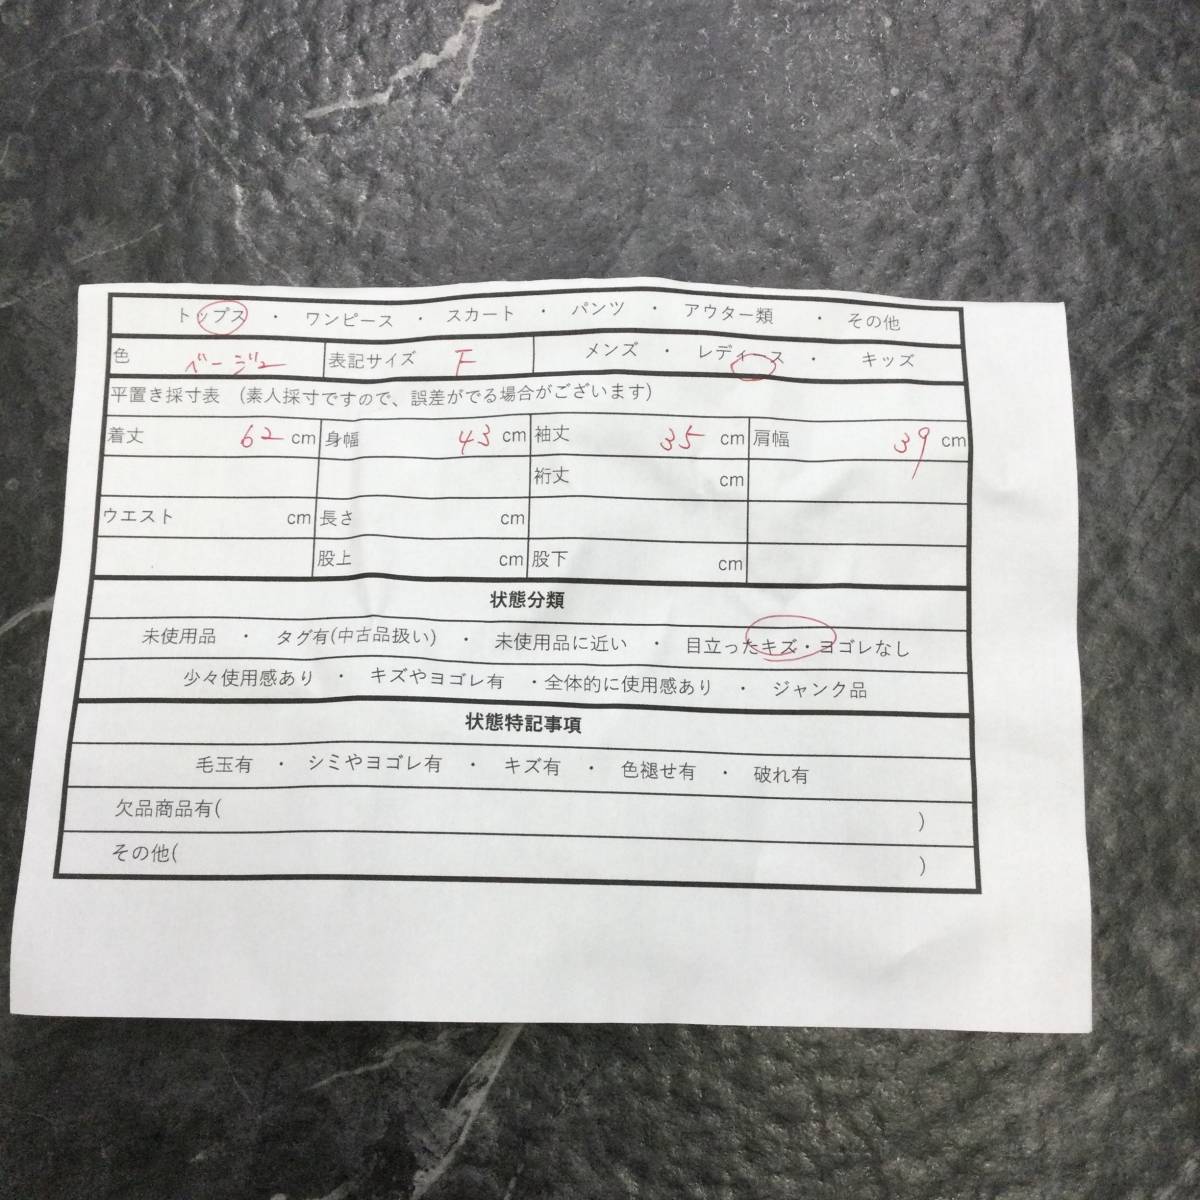 トップス ・ ワンピース ・ スカート ・ パンツ ・ アウター類 ・ その他
色 ベージュ 表記サイズ F メンズ ・ レディース ・ キッズ
平置き採寸表 (素人採寸ですので、誤差がでる場合がございます)
着丈 62 cm 身幅 43 cm 袖丈 35 cm 肩幅 39 cm
裄丈 cm
ウエスト cm 長さ cm
股上 cm 股下 cm
状態分類
未使用品 ・ タグ有(中古品扱い) ・ 未使用品に近い ・ 目立ったキズ・ヨゴレなし
少々使用感あり ・ キズやヨゴレ有 ・全体的に使用感あり ・ ジャンク品
状態特記事項
毛玉有 ・ シミやヨゴレ有 ・ キズ有 ・ 色褪せ有 ・ 破れ有
欠品商品有( )
その他( )